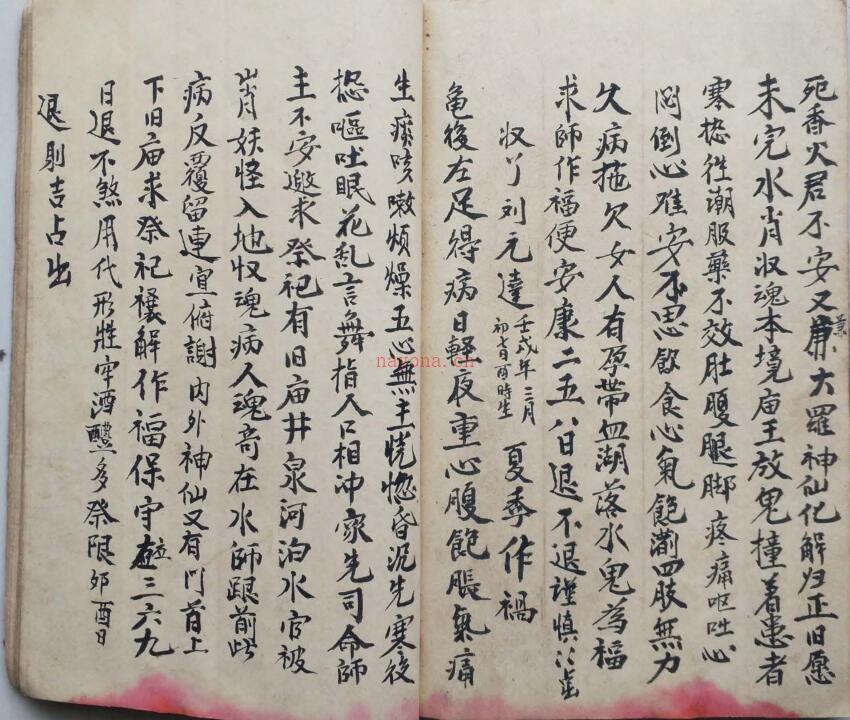 死香火君不安又兼大羅神仙化解归正旧愿
未完水肖收魂本境庙王放鬼撞着患者
寒捴徃潮服藥不效肚腹腿脚疼痛呕吐心
闷倒心难安不思飲食心氣飽满四肢無力
久病拖欠女人有孕帶血湖落水鬼為福
求師作福便安康二五八日退不退謹慎
收丫刘元達壬戌年三月初七日酉時生夏季作禍
龟後左足得病日輕夜重心腹飽脹氣痛
生痰咳嗽煩燥五心無主恍惚昏沉先寒後
捴嘔吐眠花乱言舞指人口相冲家先司命師
主不安邀求祭祀有旧庙井泉河泊水官被
山肖妖怪入地收魂病人魂奇在水師跟前此
病反覆留連宜俯謝内外神仙又有门首上
下旧庙求祭祀禳解作福保守在三六九
日退不煞用代形牲牢酒醴多祭限卯酉日
退則吉占出
nayona.cn